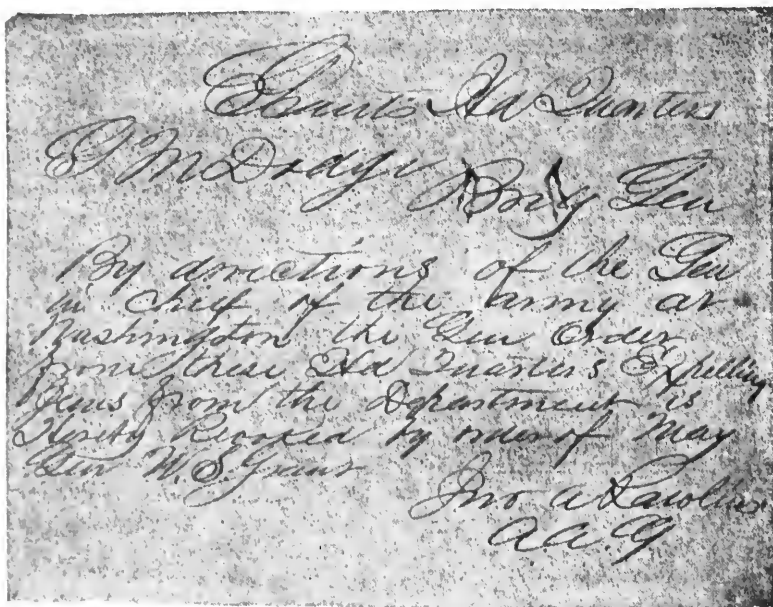 Grants Hd Quarters
G M Dodge Brig Gen
By directions of the Gen
in chief of the army at
Washington the Gen Order
from these Hd Quarters Expelling
Jews from the Department is
Hereby Revoked by order of Maj
Gen U. S. Grant
Jno A Rawlins
A.A.G